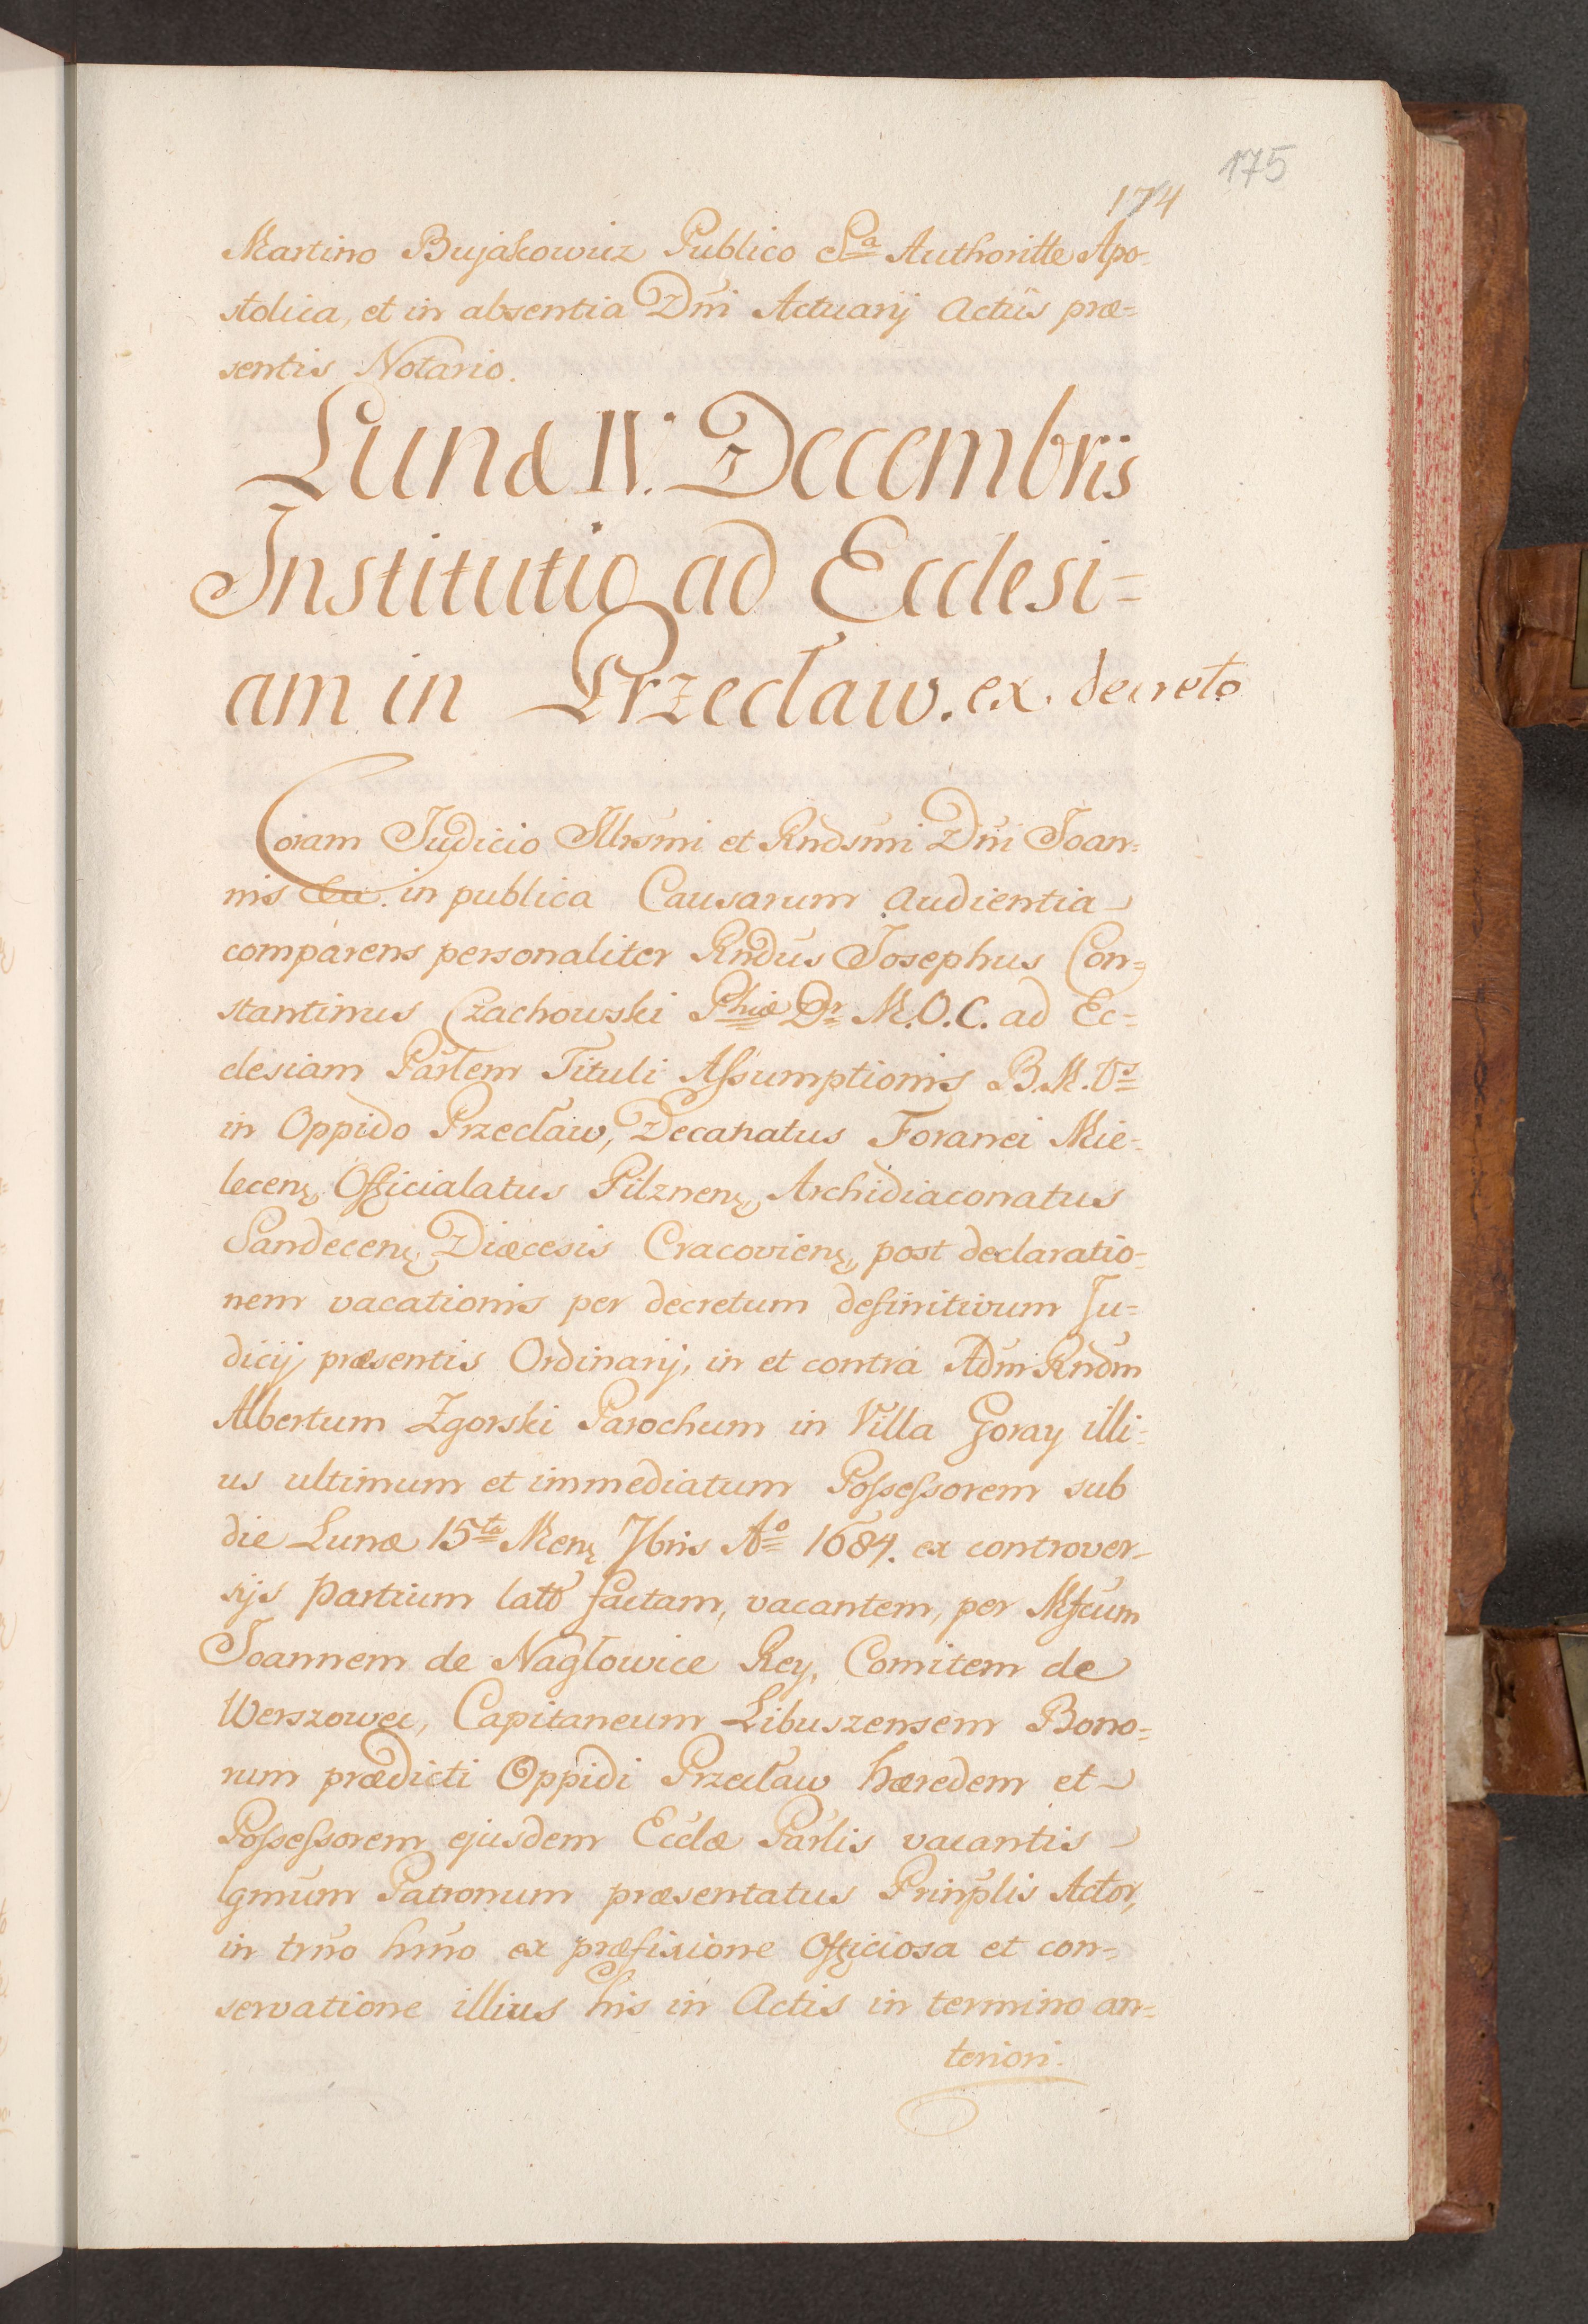 175
174
Martino Bujakowicz Publico Sa Authoritte Apo-
stolica, et in absentia Dni Actuarij Actûs præ=
sentis Notario.
Lunæ IV. Decembris
Institutio ad Ecclesi=
am in Przecław. ex decreto
Coram Judicio Illrsmi et Rndsmi Dni Joan=
nis &a. in publica Causarum audientia
comparens personaliter Rndus Josephus Con=
stantinus Czachowski Phiæ Dr M.O.C. ad Ec=
clesiam Parlem Tituli Assumptionis B.M.Vs
in Oppido Przecław, Decanatus Foranei Mie-
lecenę, Officialatus Pilznenę, Archidiaconatus
Sandecenę Diæcesis Cracovienę, post declaratio-
nem vacationis per decretum definitivum Ju=
dicij præsentis Ordinarij, in et contra Adm Rndm
Albertum Zgorski Parochum in Villa Goray illi-
us ultimum et immediatum Possessorem sub
die Lunæ 15ta Menę 7bris Ao 1684. ex controver-
sijs Partium latô factam, vacantem, per Mfcum
Joannem de Nagłowice Rey, Comitem de
Werszowec, Capitaneum Libuszensem Bono=
rum prædicti Oppidi Przecław hæredem et
Possessorem ejusdem Ecclæ Parlis vacantis
lgmum Patronum præsentatus Prinplis Actor,
in trno hrno ex præfixione Officiosa et con=
servatione illius his in Actis in termino an=
teriori.